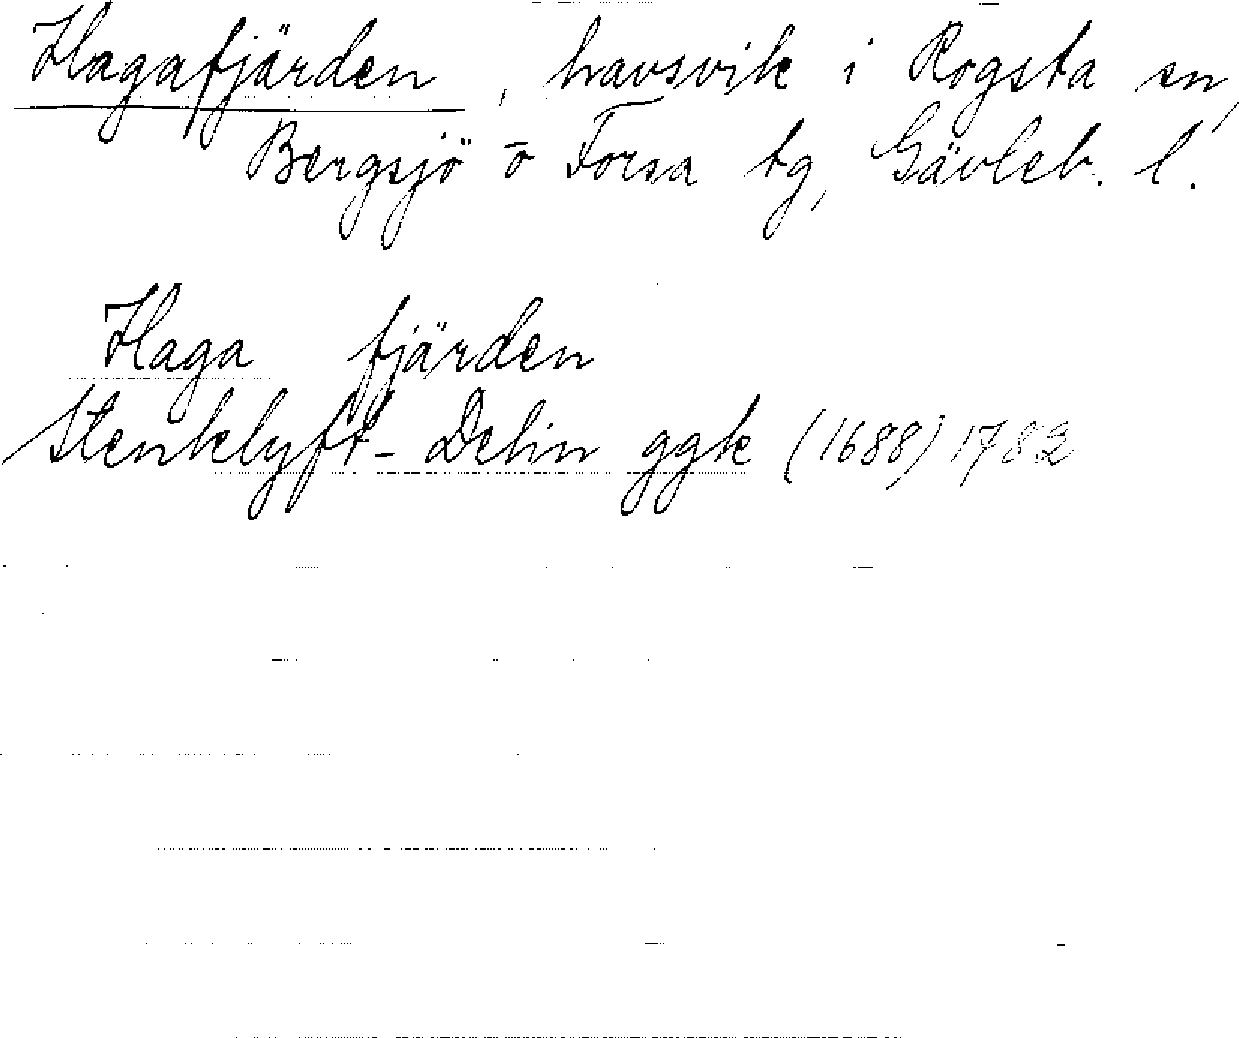 Hagafjärden, havsvik i Rogsta sn,
Bergsjö o Forsa tg, Gävleb. l.
Haga fjärden
Stenklyft-Delin ggk (1688) 1782